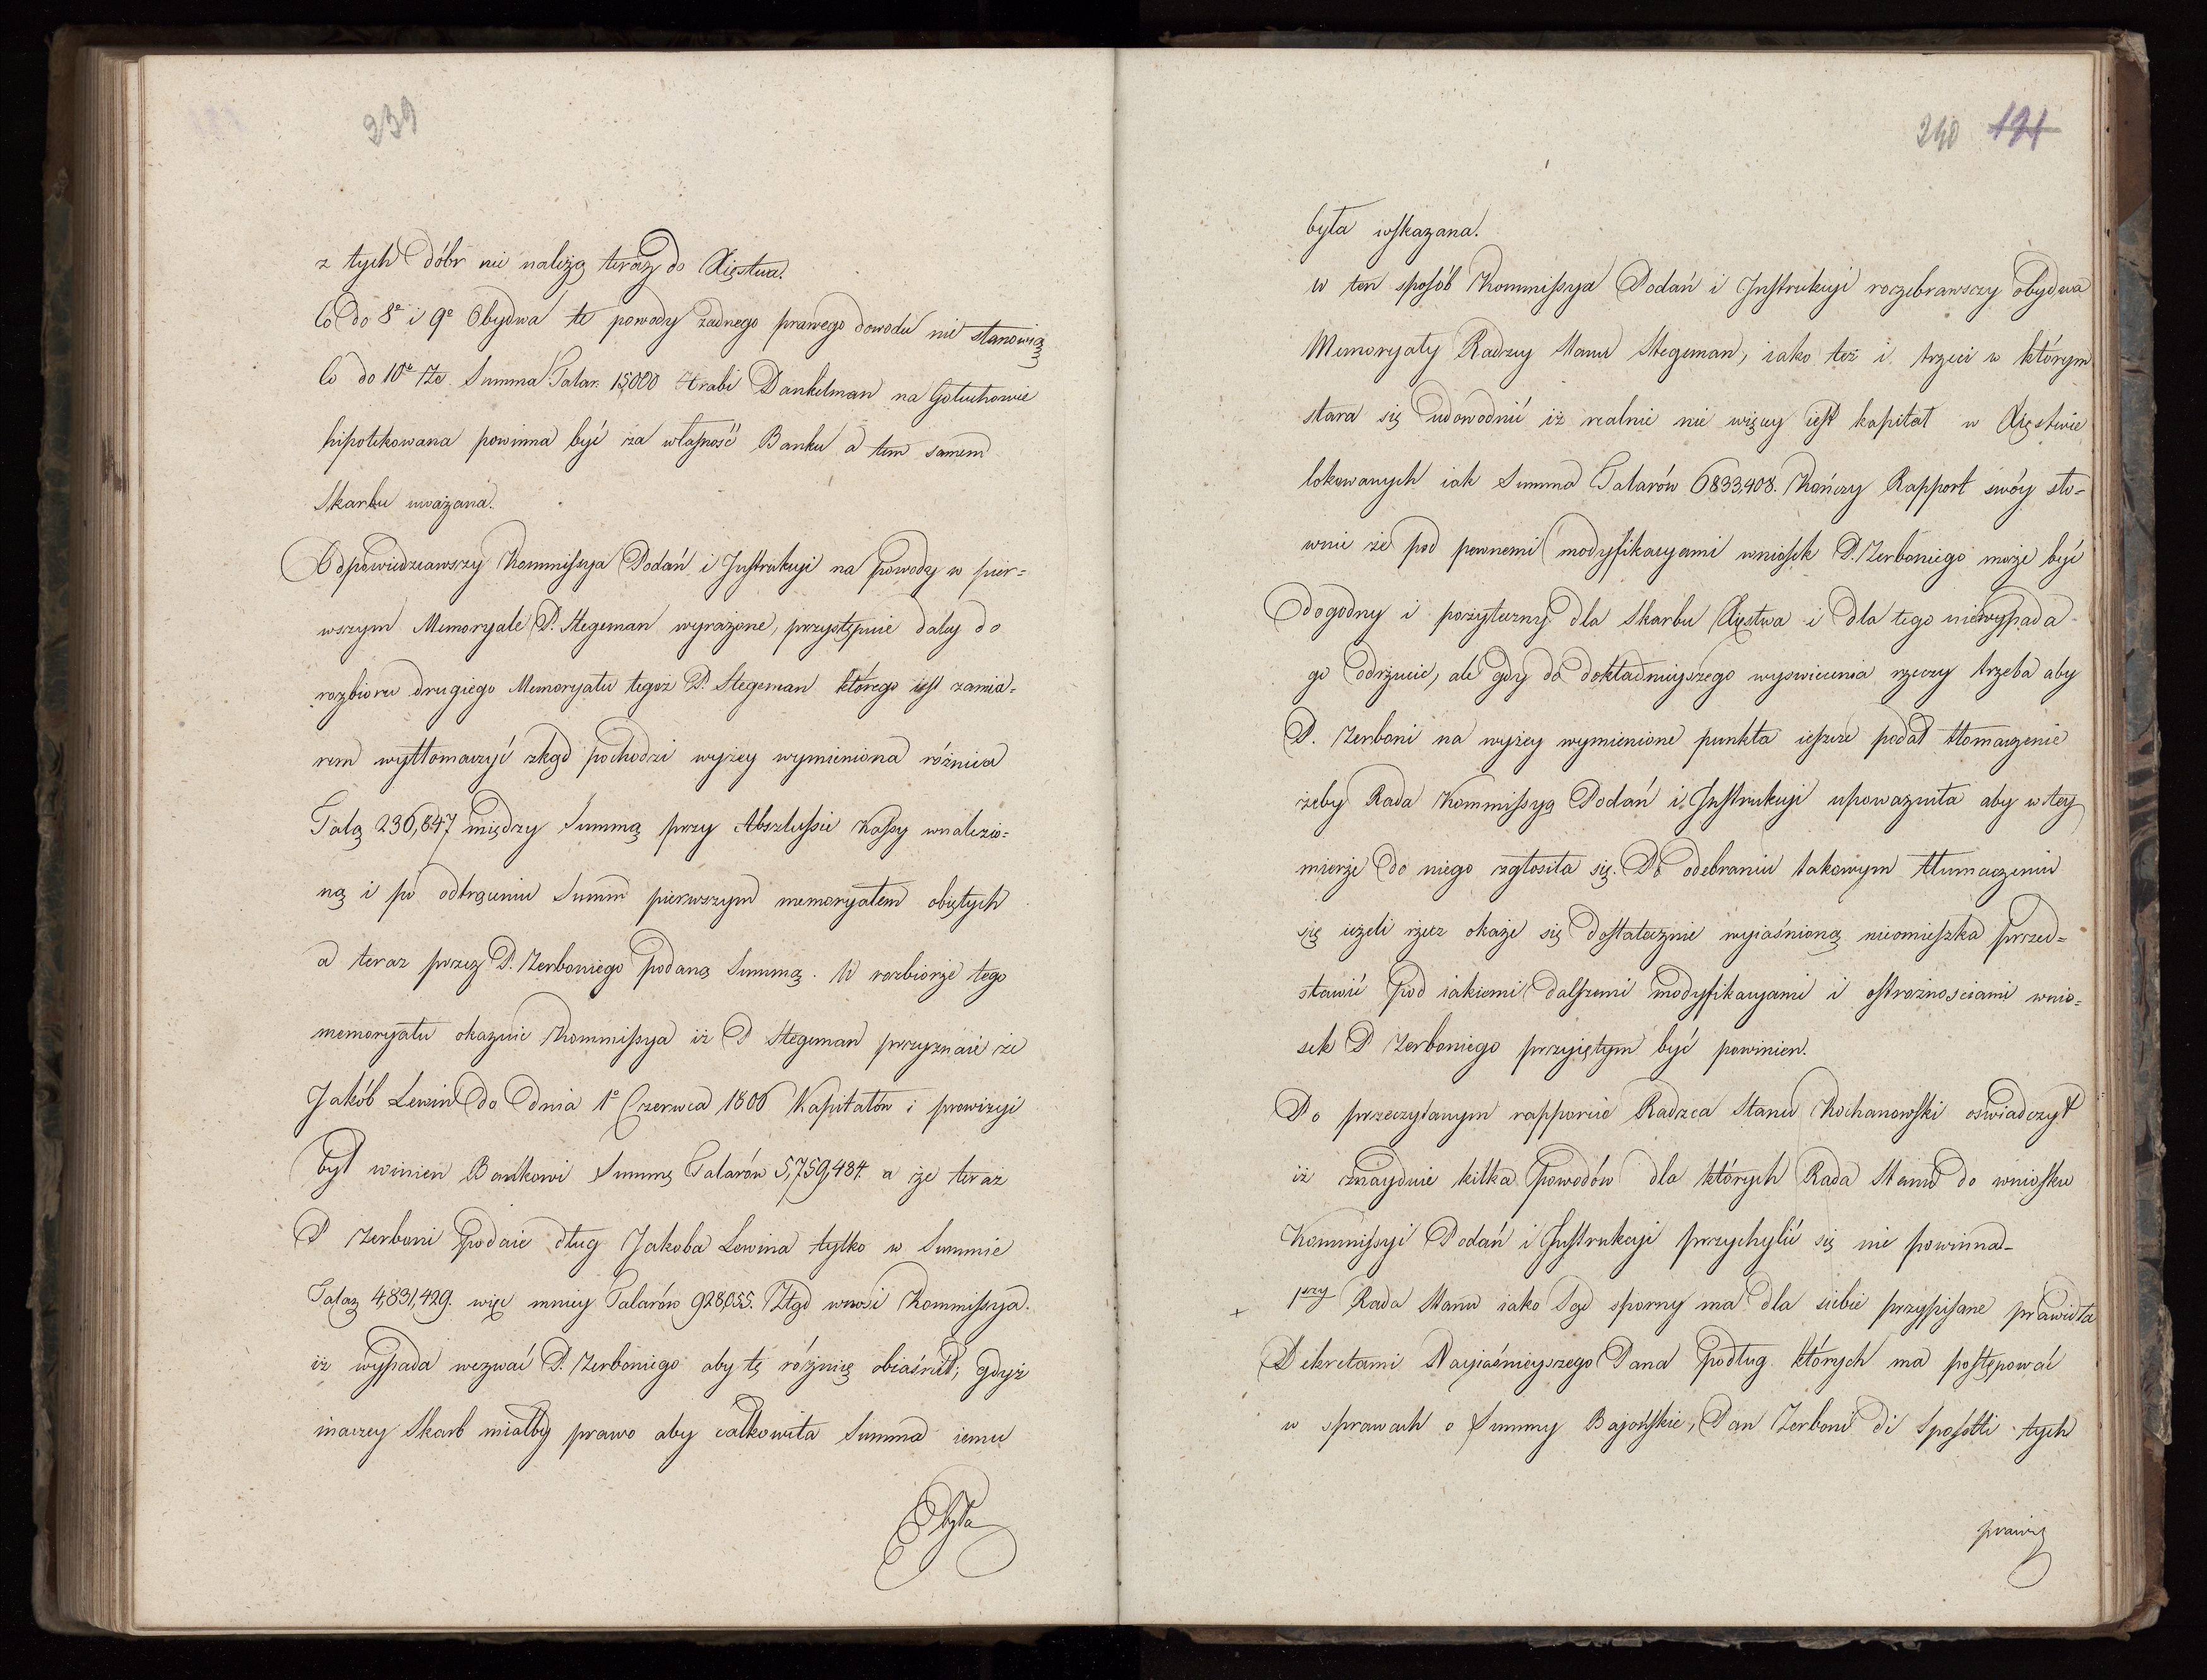 239
z tych dóbr nie należą teraz do Xięstwa.
Co do 8º i 9º Obydwa te powody żadnego prawego dowodu nie stanowią
Co do 10º że Summa Talar. 15,000 Hrabi Dankelman na Gołuchowie
hipotekowana powinna być za własność Banku a tem samem
Skarbu uważana.
Odpowiedziawszy Kommissya Podań i Instrukcyi na powody w pier=
wszym Memoryale P. Stegeman wyrażone, przystępuie daley do
rozbioru drugiego Memoryału tegoż P. Stegeman którego iest zamia=
rem wytłomaczyć zkąd pochodzi wyżey wymieniona różnica
Talą 236,847 między Summą przy Abszlussie Kassy wnalezio=
ną i po odtrąceniu Summ pierwszym memoryałem obiętych
a teraz przez P. Zerboniego podaną Summą. W rozbiorze tego
memoryału okazuie Kommissya iż P Stegeman przyznaie że
Jakób Lewin do dnia 1º Czerwca 1806 Kapitałów i prowizyi
był winien Bankowi Summę Talarów 5,759,484. a że teraz
P Zerboni podaie dług Jakoba Lewina tylko w Summie
Talaą 4,831,429. więc mniey Talarów 928,055. Ztąd wnosi Kommissya
iż wypada wezwać P. Zerboniego aby tę różnicę obiaśnił; gdyż
inaczey Skarb miałby prawo aby całkowita Summa iemu
była
240 121
była wskazana.
w ten sposób Kommissya Podań i Instrukcyi rozebrawszy obydwa
Memoryały Radzcy Stanu Stegeman, iako też i trzeci w którym
stara się udowodnić iż realnie nie więcey iest kapitał w Xięstwie
lokowanych iak Summa Talarów 6833,408. Kończy Rapport swóy sto=
wnie że pod pewnemi modyfikacyami wniosek P. Zerboniego może być
dogodny i pożyteczny dla Skarbu Xięstwa i dla tego niewypada
go odrzucić, ale gdy do dokładnieyszego wyswiecenia rzeczy trzeba aby
P. Zerboni na wyżey wymienione punkta ieszcze podał tłomaczenie
żeby Rada Kommissyą Podań i Instrukcyi upoważniła aby w tey
mierze do niego zgłosiła się. Po odebraniu takowym tłumaczeniu
się ieżeli rzecz okaże się dostatecznie wyiaśnioną nieomieszka przed=
stawić pod iakiemi dalszemi modyfikacyami i ostrożnosciami wnio=
sek P Zerboniego przyiętym być powinien.
Po przeczytanym rapporcie Radzca Stanu Kochanowski oświadczył
iż znayduie kilka powodów dla których Rada Stanu do wniosku
Kommissyi Podań i Instrukcyi przychylić się nie powinna-
+ 1szy Rada Stanu iako Sąd sporny ma dla siebie przypisane prawidła
Dekretami Nayiaśnieyszego Pana podług których ma postępować
w sprawach o Summy Bajońskie, Pan Zerboni di Sposetti tych
prawią